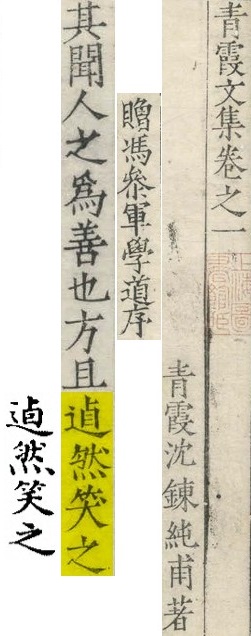 青霞文集卷之一
青霞沈鍊純甫著
贈馮叅軍學道序
其聞人之爲善也方且逌然笑之
逌然笑之